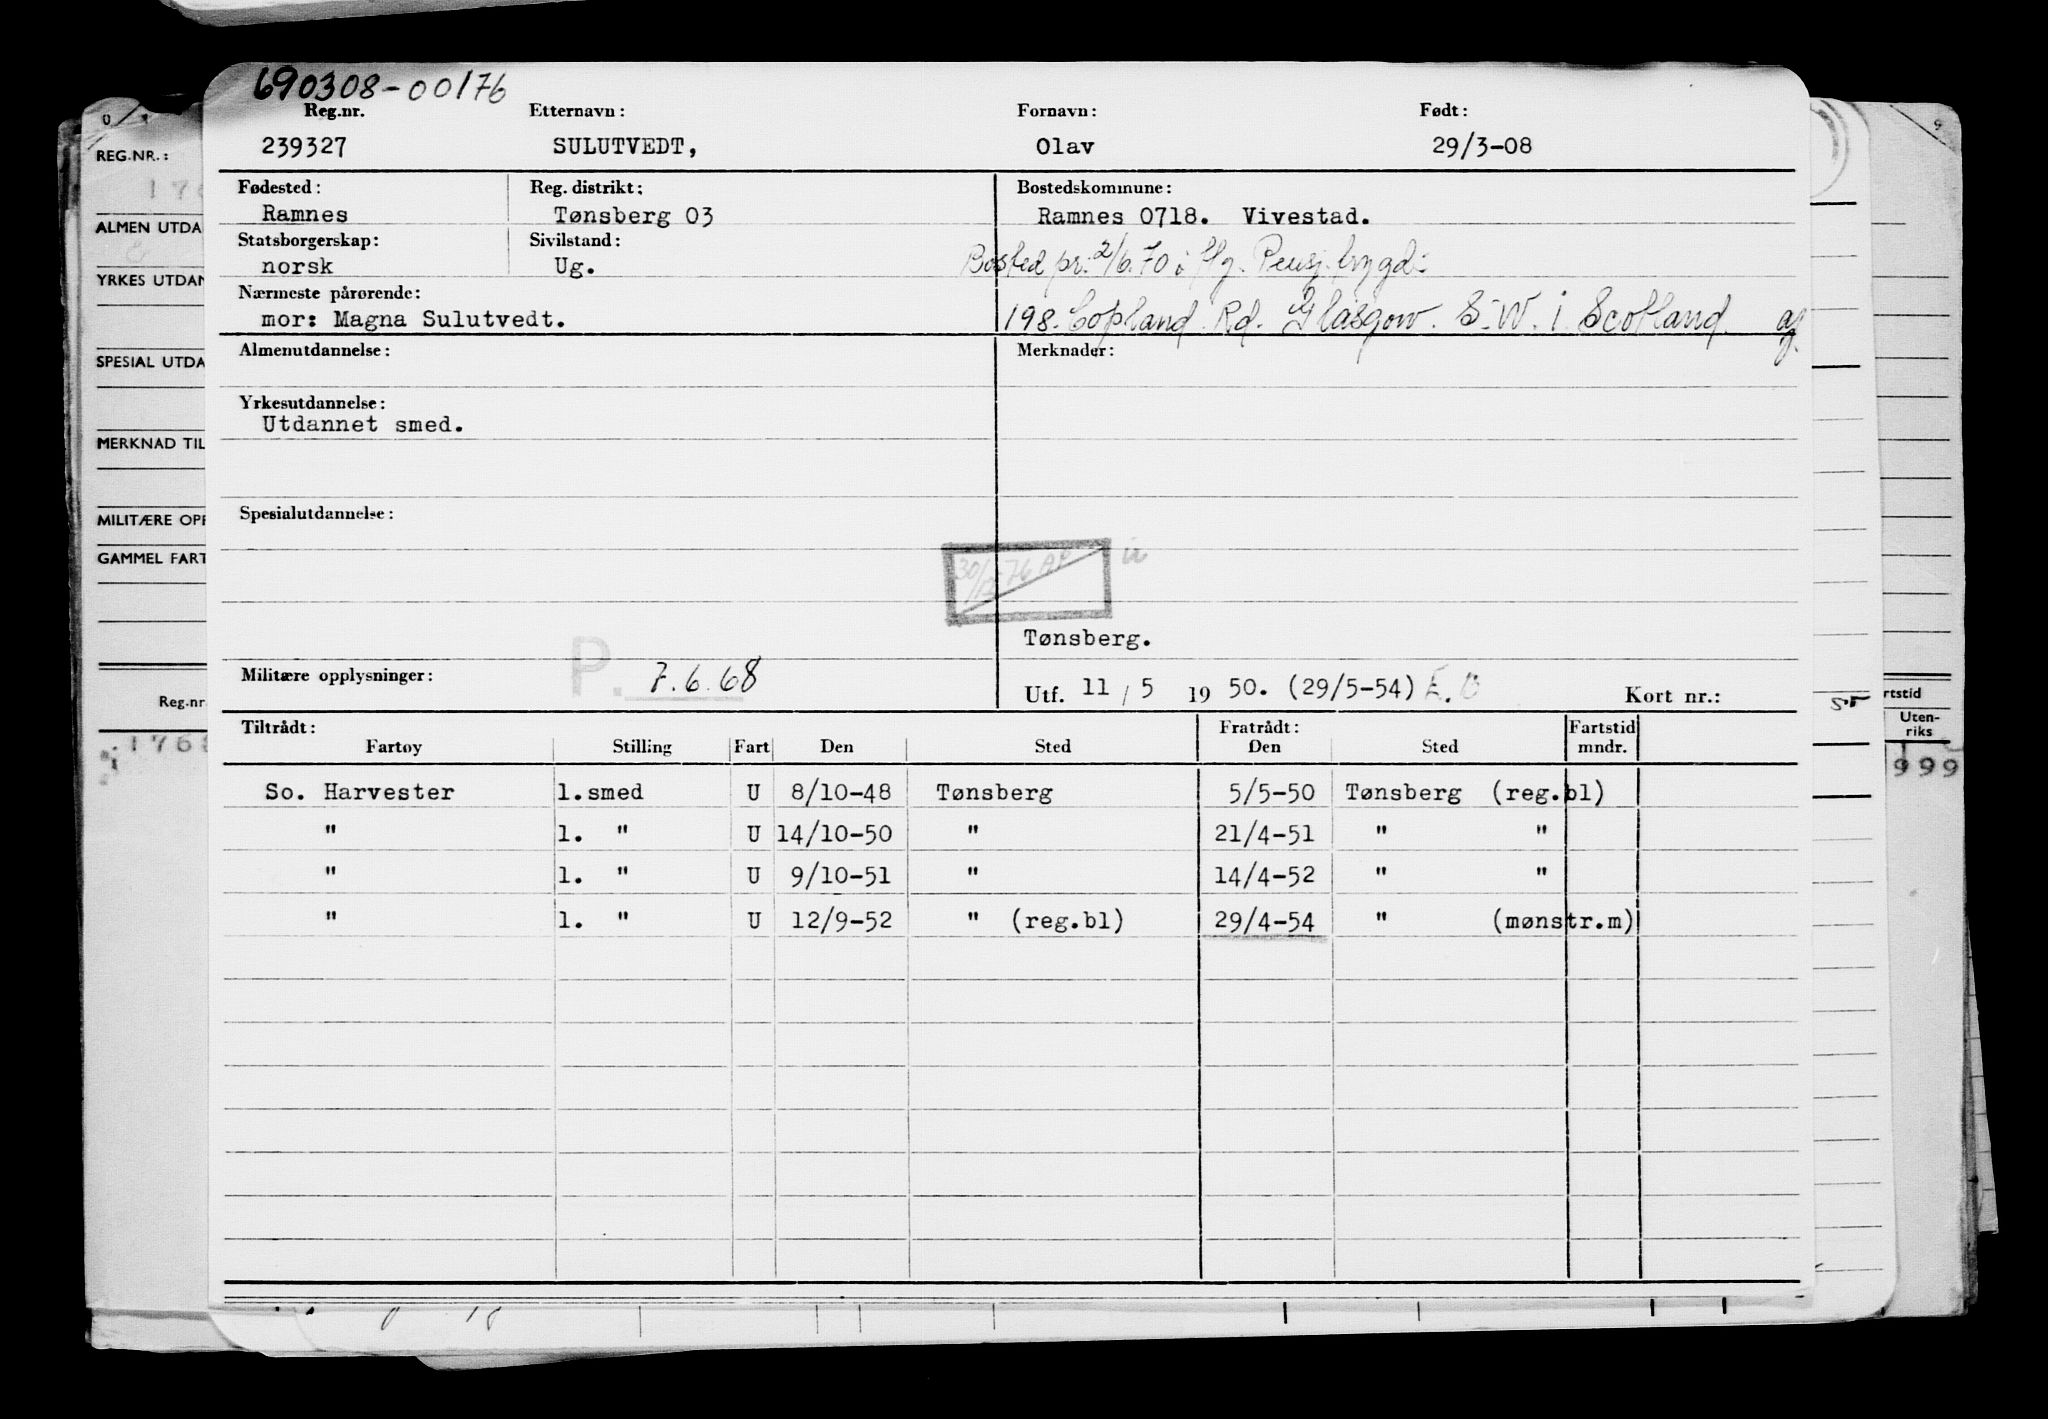 690308-00176
Reg.nr. Etternavn: Fornavn: Født:
239327 SULUTVEDT, Olav 29/3-08
Fødested: Reg. distrikt: Bostedskommune:
Ramnes Tønsberg 03 Ramnes 0718. Vivestad.
Statsborgerskap: Sivilstand:
norsk Ug. Bosted pr. 2/6.70 i flg. Pensj. trygd:
Nærmeste pårørende:
mor: Magna Sulutvedt. 198. Copland Rd. Glasgow. S-W. i Scotland.
Almenutdannelse: Merknader:
Yrkesutdannelse:
Utdannet smed.
Spesialutdannelse:
30/12-76
Tønsberg.
Militære opplysninger: P. 7.6.68
Utf. 11/5 1950. (29/5-54) E.O Kort nr.:
Tiltrådt: Fratrådt: Fartstid
Fartøy Stilling Fart Den Sted Den Sted mndr.
So. Harvester 1.smed U 8/10-48 Tønsberg 5/5-50 Tønsberg (reg.bl)
" 1. " U 14/10-50 " 21/4-51 " "
" 1. " U 9/10-51 " 14/4-52 " "
" 1. " U 12/9-52 " (reg.bl) 29/4-54 " (mønstr.m)
REG.NR.:
ALMEN UTDA
YRKES UTDAN
SPESIAL UTDA
MERKNAD TIL
MILITÆRE OPP
GAMMEL FART
Reg.nr.
1768
rtstid
Uten-
riks
999